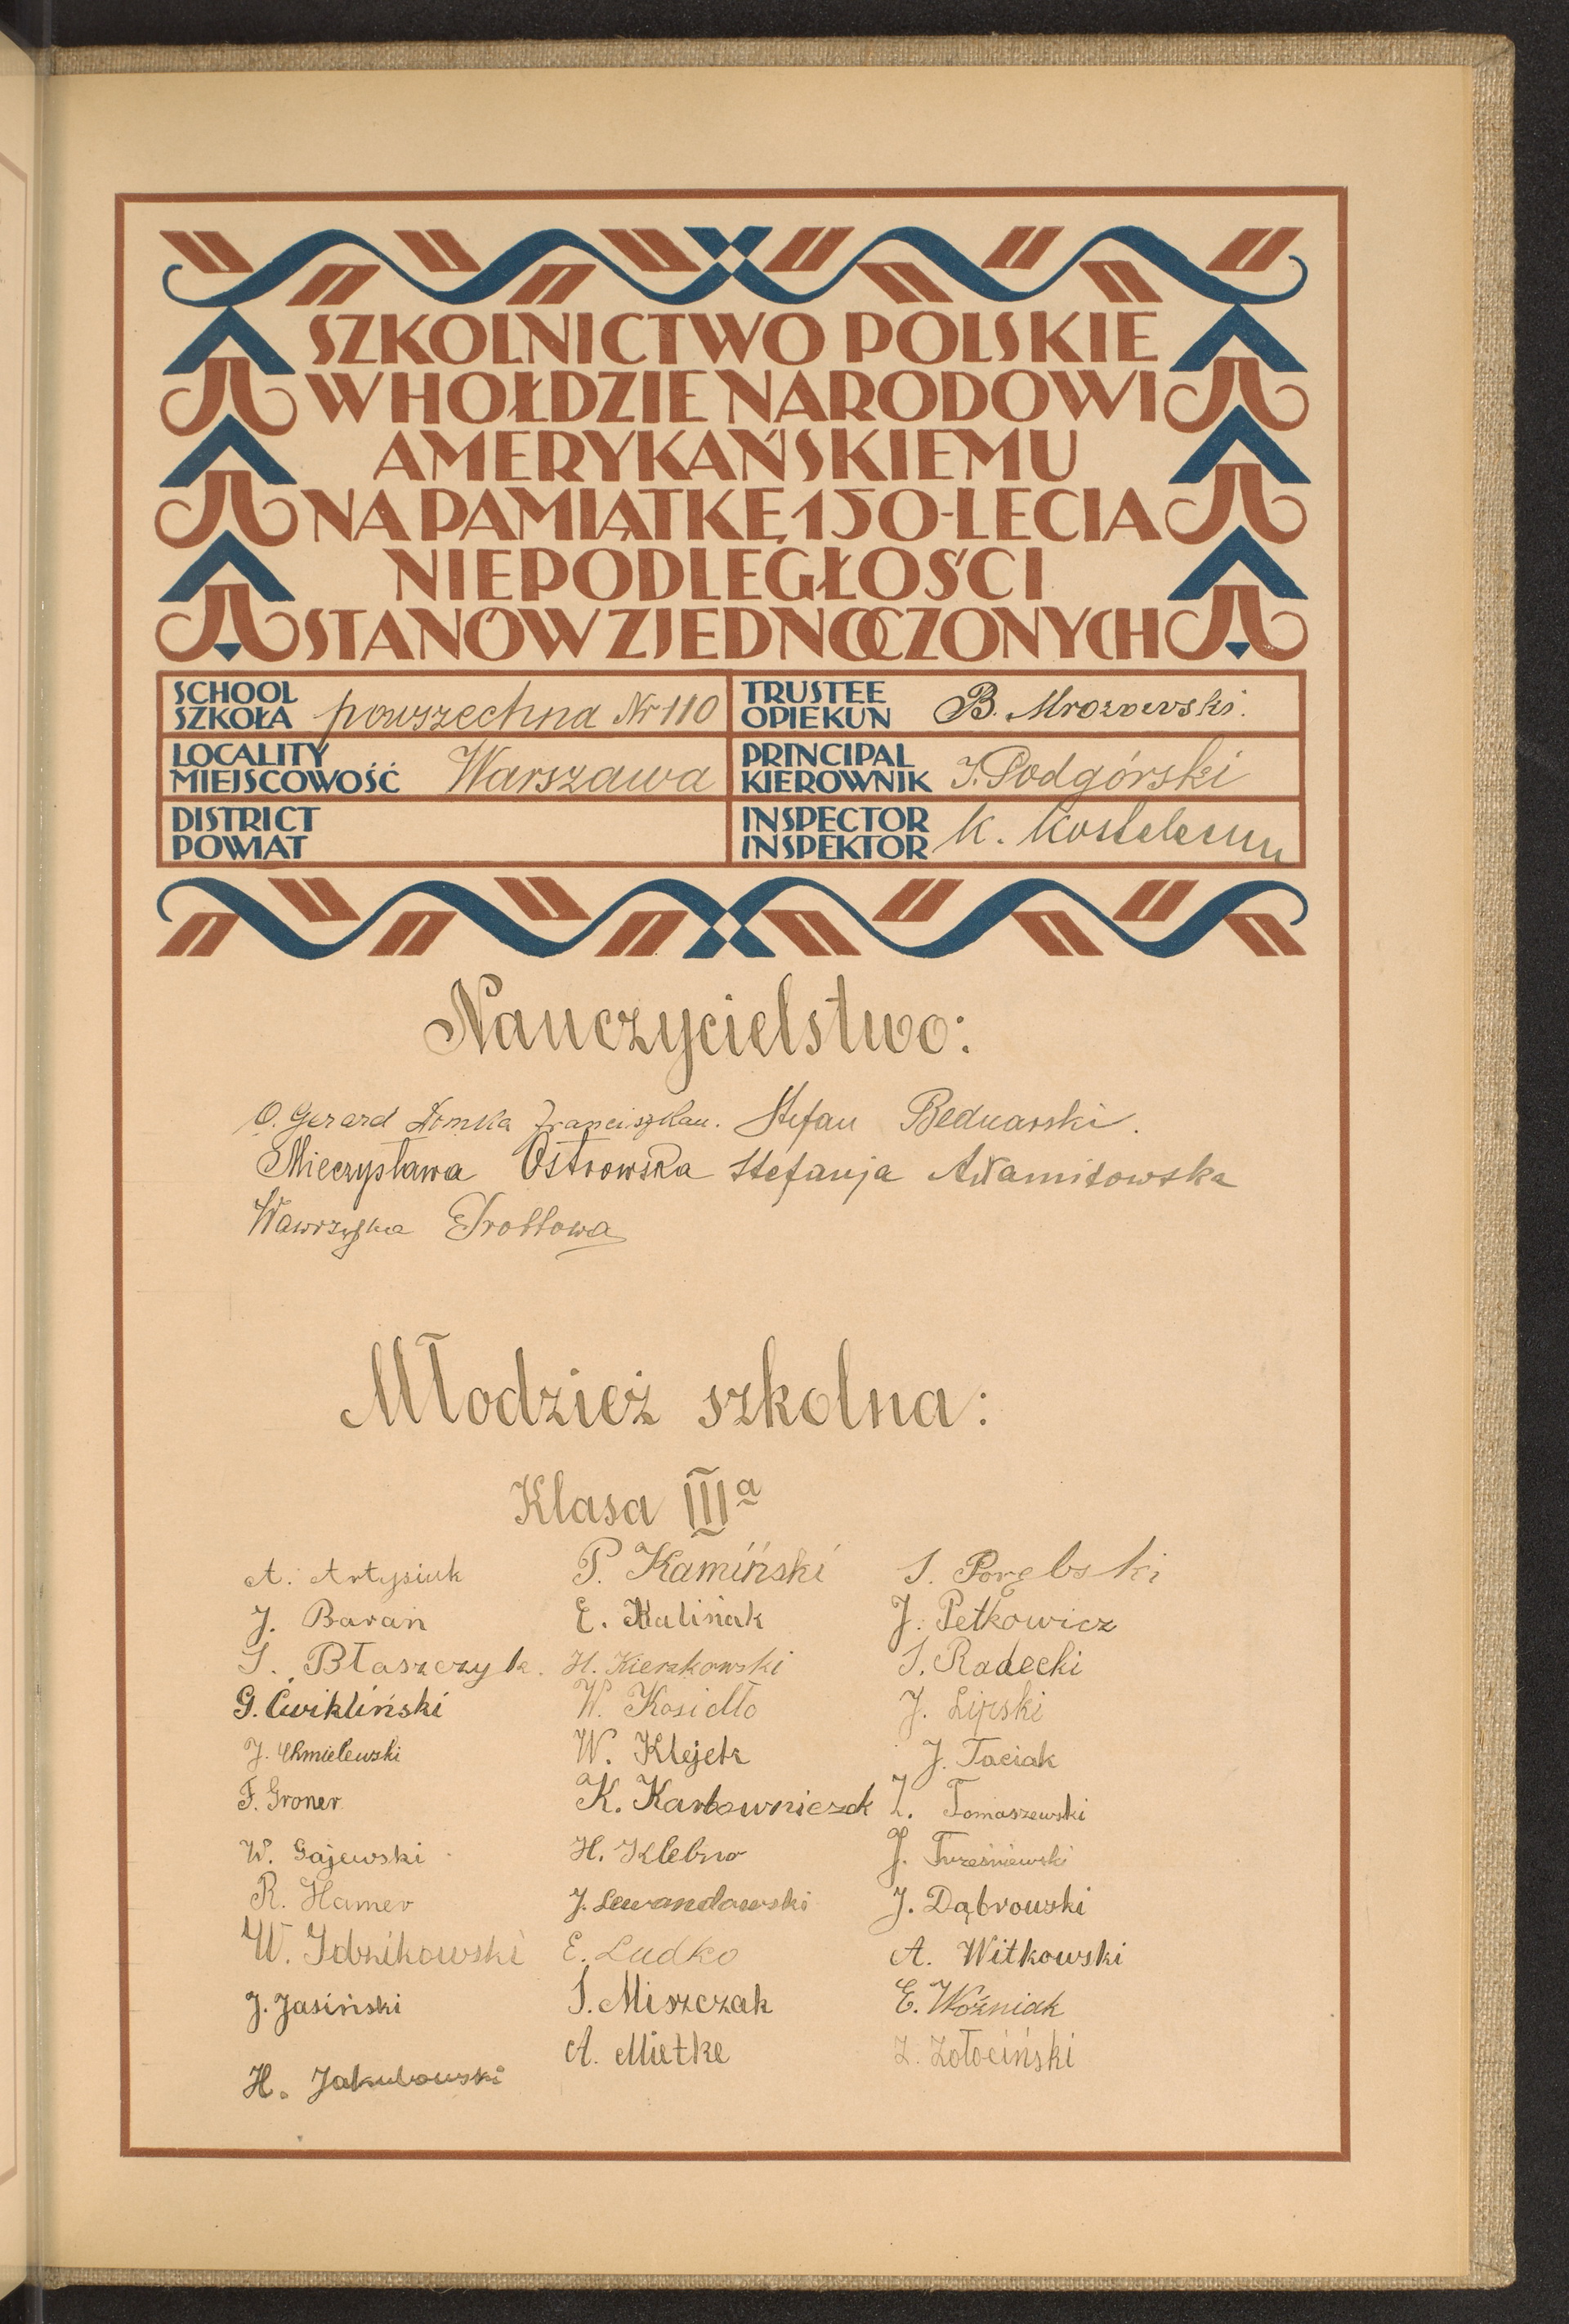 SZKOLNICTWO POLSKIE
W HOŁDZIE NARODOWI
AMERYKAŃSKIEMU
NA PAMIĄTKĘ 150-LECIA
NIEPODLEGŁOŚCI
STANÓW ZJEDNOCZONYCH
SCHOOL
SZKOŁA powszechna Nr 110
TRUSTEE
OPIEKUN B. Mrozowski.
LOCALITY
MIEJSCOWOŚĆ Warszawa
PRINCIPAL
KIEROWNIK J. Podgórski
DISTRICT
POWIAT
INSPECTOR
INSPEKTOR K.
Nauczycielstwo:
O. Gerard Domka Franciszkan. Stefan Bednarski.
Mieczysława Ostrowska Stefanja Adamitowska
Młodzież szkolna:
Klasa IIIa
A. Artysiuk
J. Baran
S. Błaszczyk.
G. Ćwikliński
J. Chmielewski
F. Groner
W. Gajewski
R. Hamer
W. Idzikowski
J. Jasiński
H. Jakubowski
P. Kamiński
E. Kaliniak
H. Kierzkowski
W. Kosidło
W. Klejek
K. Karbowniczek
H. Klebno
J. Lewandowski
E. Ludko
S. Miszczak
A. Mietke
S. Porębski
J. Petkowicz
S. Radecki
J. Lipski
J. Taciak
Z. Tomaszewski
J. Trześniewski
J. Dąbrowski
A. Witkowski
E. Woźniak
Z. Zołociński